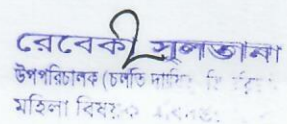 রেবেকা সুলতানা
উপপরিচালক (চলতি দায়িত্ব
মহিলা বিষয়ক